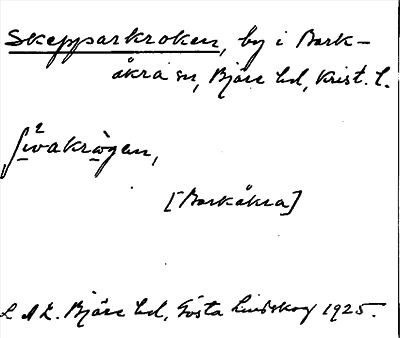 Skepparkroken, by i Bark-
åkra sn, Bjäre hd, Krist. l.
[Barkåkra]
L A L. Bjäre hd, Gösta Lindskog 1925.